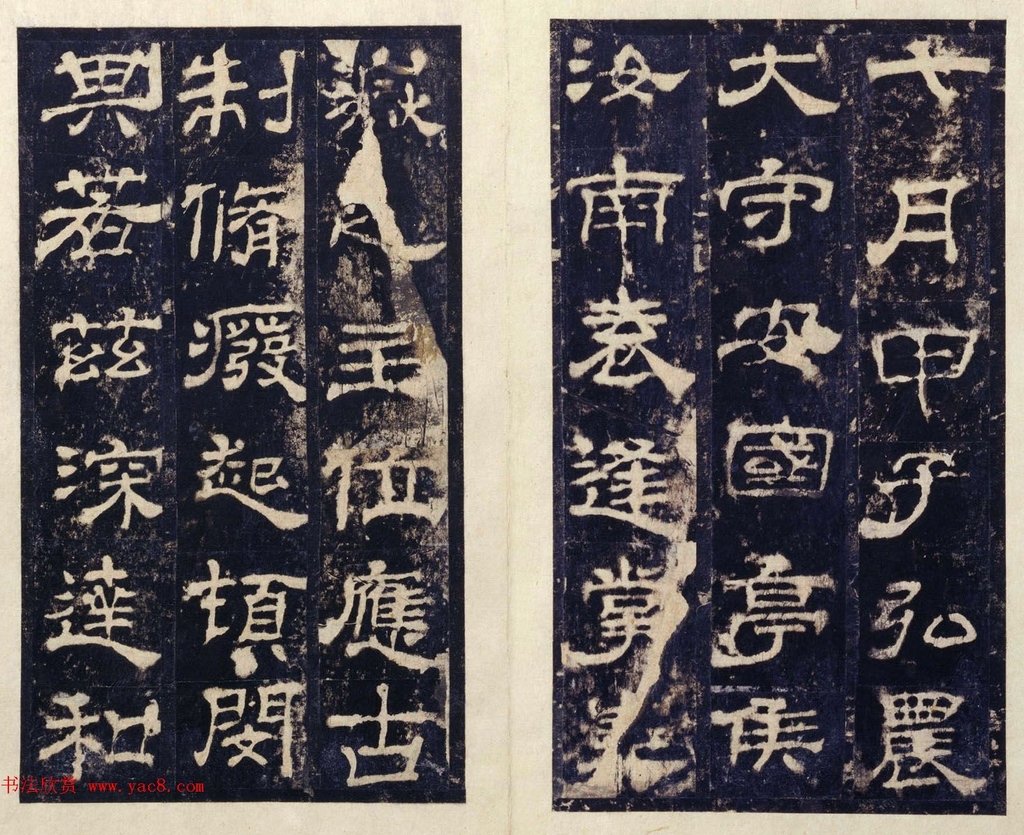 七月甲子弘農
大守安國亭侯
汝南袁逢掌華
嶽之主位應古
制脩癈起頓閔
其若茲深達和
书法欣赏 www.yac8.com